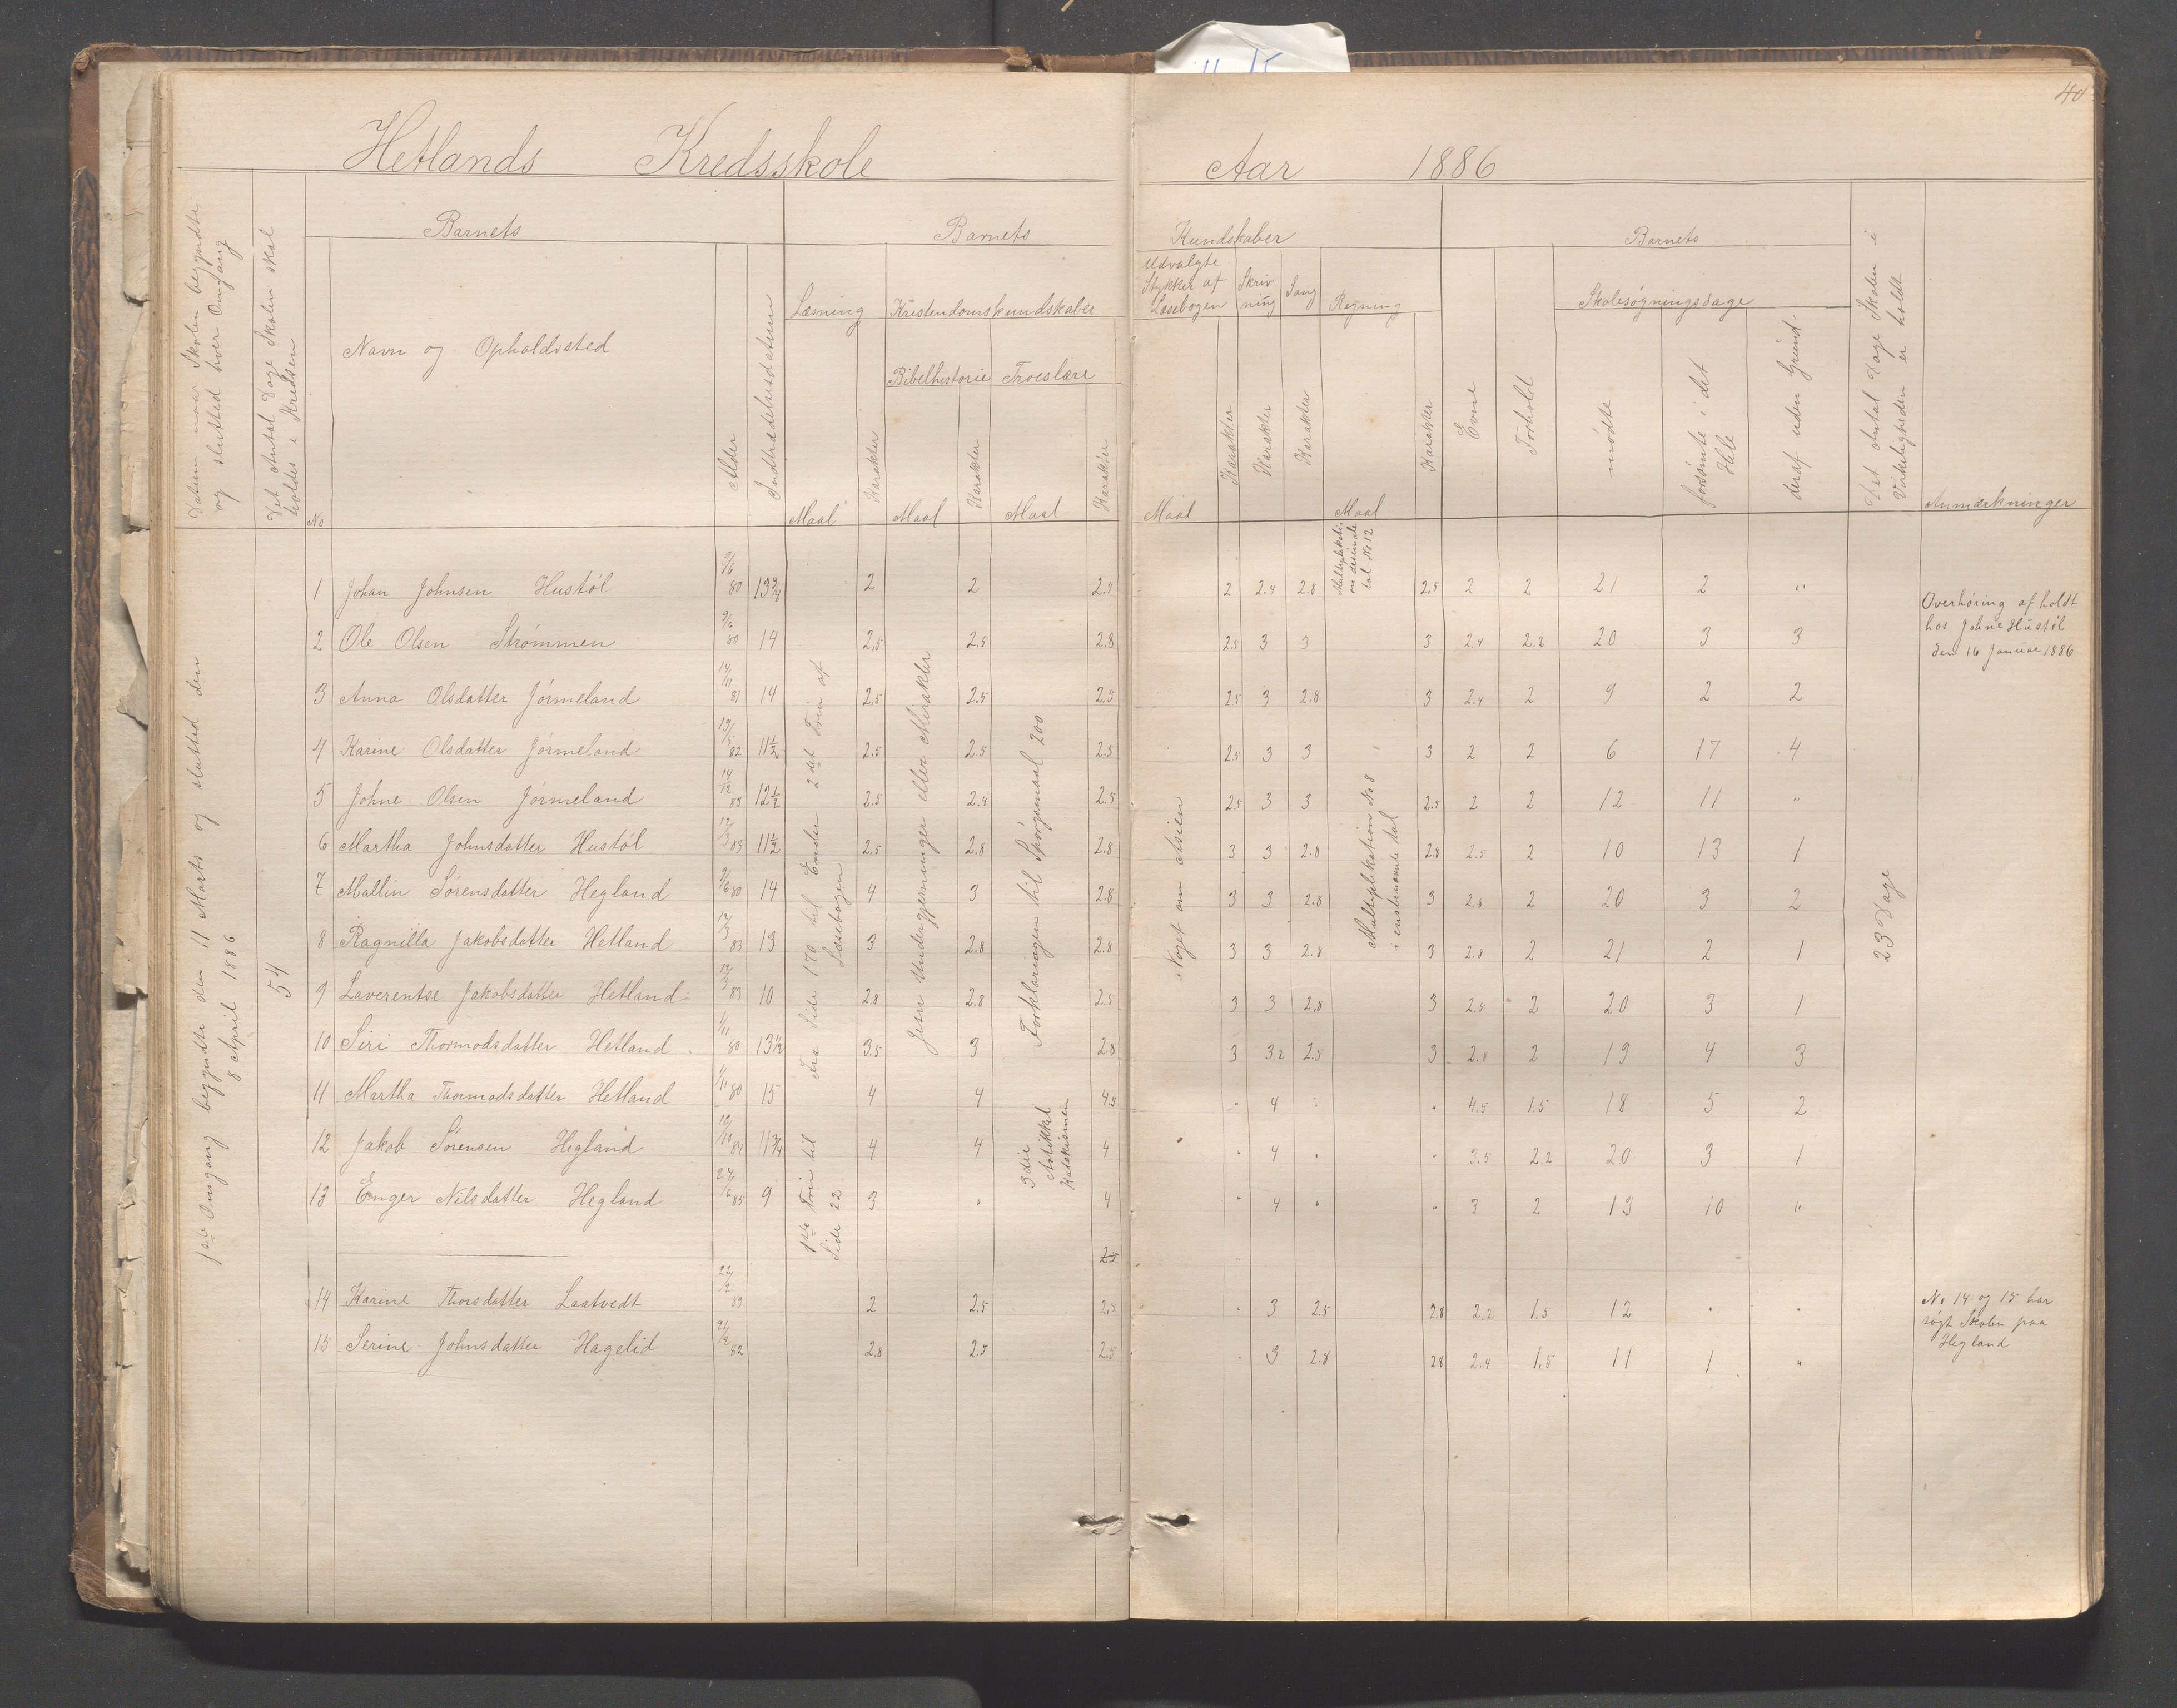 40
Hetlands Kredsskole Aar 1886
Datum naar Skolen begyndte og slutted hver Omgang
Det Antal Dage Skolen skal holdes i Kredsen
Barnets
No
Navn og Opholdssted
Alder
Indtrædelsesdatum
Barnets Kundskaber
Læsning
Maal
Karakter
Kristendomskundskaber
Bibelhistorie
Maal
Karakter
Troeslære
Maal
Karakter
Udvalgte
Stykker af
Læsebogen
Maal
Karakter
Skriv
ning
Karakter
Sang
Karakter
Regning
Maal
Karakter
Barnets
Evne
Forhold
Skolesøgningsdage
mødte
forsømte i det Hele
deraf uden Grund
Det Antal Dage Skolen i Virkeligheden er holdt
Anmærkninger
1ste Omgang begyndte den 11 Marts og slutted den
8 April 1886
54
1 Johan Johnsen Hustøl 9/6 80 13 3/4 2 2 2.4 2 2.4 2.8 2.5 2 2 21 2 "
2 Ole Olsen Strømmen 9/6 80 14 2.5 2.5 2.8 2.5 3 3 3 2.4 2.2 20 3 3
3 Anna Olsdatter Jørmeland 14/11 81 14 2.5 2.5 2.5 2.5 3 2.8 3 2.4 2 9 2 2
4 Karine Olsdatter Jørmeland 19/5 82 11 1/2 2.5 2.5 2.5 2.5 3 3 3 2 2 6 17 4
5 Johne Olsen Jørmeland 14/12 83 12 1/2 2.5 2.4 2.5 2.5 3 3 2.5 2 2 12 11 "
6 Martha Johnsdatter Hustøl 12/3 83 11 1/2 2.5 2.8 2.8 3 3 2.8 2.8 2.5 2 10 13 1
7 Mallin Sørensdatter Hegland 9/6 80 14 4 3 2.8 3 3 2.8 3 2.8 2 20 3 2
8 Ragnilla Jakobsdatter Hetland 12/3 83 13 3 2.8 2.8 3 3 2.8 3 2.8 2 21 2 1
9 Laverentse Jakobsdatter Hetland 12/3 83 10 2.8 2.8 2.5 3 3 2.8 3 2.5 2 20 3 1
10 Siri Thormodsdatter Hetland 1/11 80 13 1/2 3.5 3 2.8 3 3.2 2.5 3 2.8 2 19 4 3
11 Martha Thormodsdatter Hetland 1/11 80 15 4 4 4.5 " 4 " " 4.5 1.5 18 5 2
12 Jakob Sørensen Hegland 10/10 84 11 3/4 4 4 4 " 4 " " 3.5 2.2 20 3 1
13 Enger Nilsdatter Hegland 24/6 85 9 3 " 4 " 4 " " 3 2 13 10 "
2.5
14 Karine Thorsdatter Laatvedt 22/2 83 2 2.5 2.5 " 3 2.5 2.8 2.2 1.5 12 " "
15 Serine Johnsdatter Hagelid 21/2 82 2.8 2.5 2.5 " 3 2.8 2.8 2.4 1.5 11 1 "
Fra Side 170 til Enden 2det Trin af
Læsebogen
1ste Trin til
Side 22
Jesu Undergjerninger eller Mirakler
Forklaringen til Spørgsmaal 200
3die
Artikkel
Katekismen
Noget om Asien
Multiplikati
on desimale
tal No 12
Multiplikation No 8
i ensbenævnte tal
23 Dage
Overhøring afholdt
hos Johne Hustøl
den 16 Januar 1886
No 14 og 15 har
søgt Skolen paa
Hegland